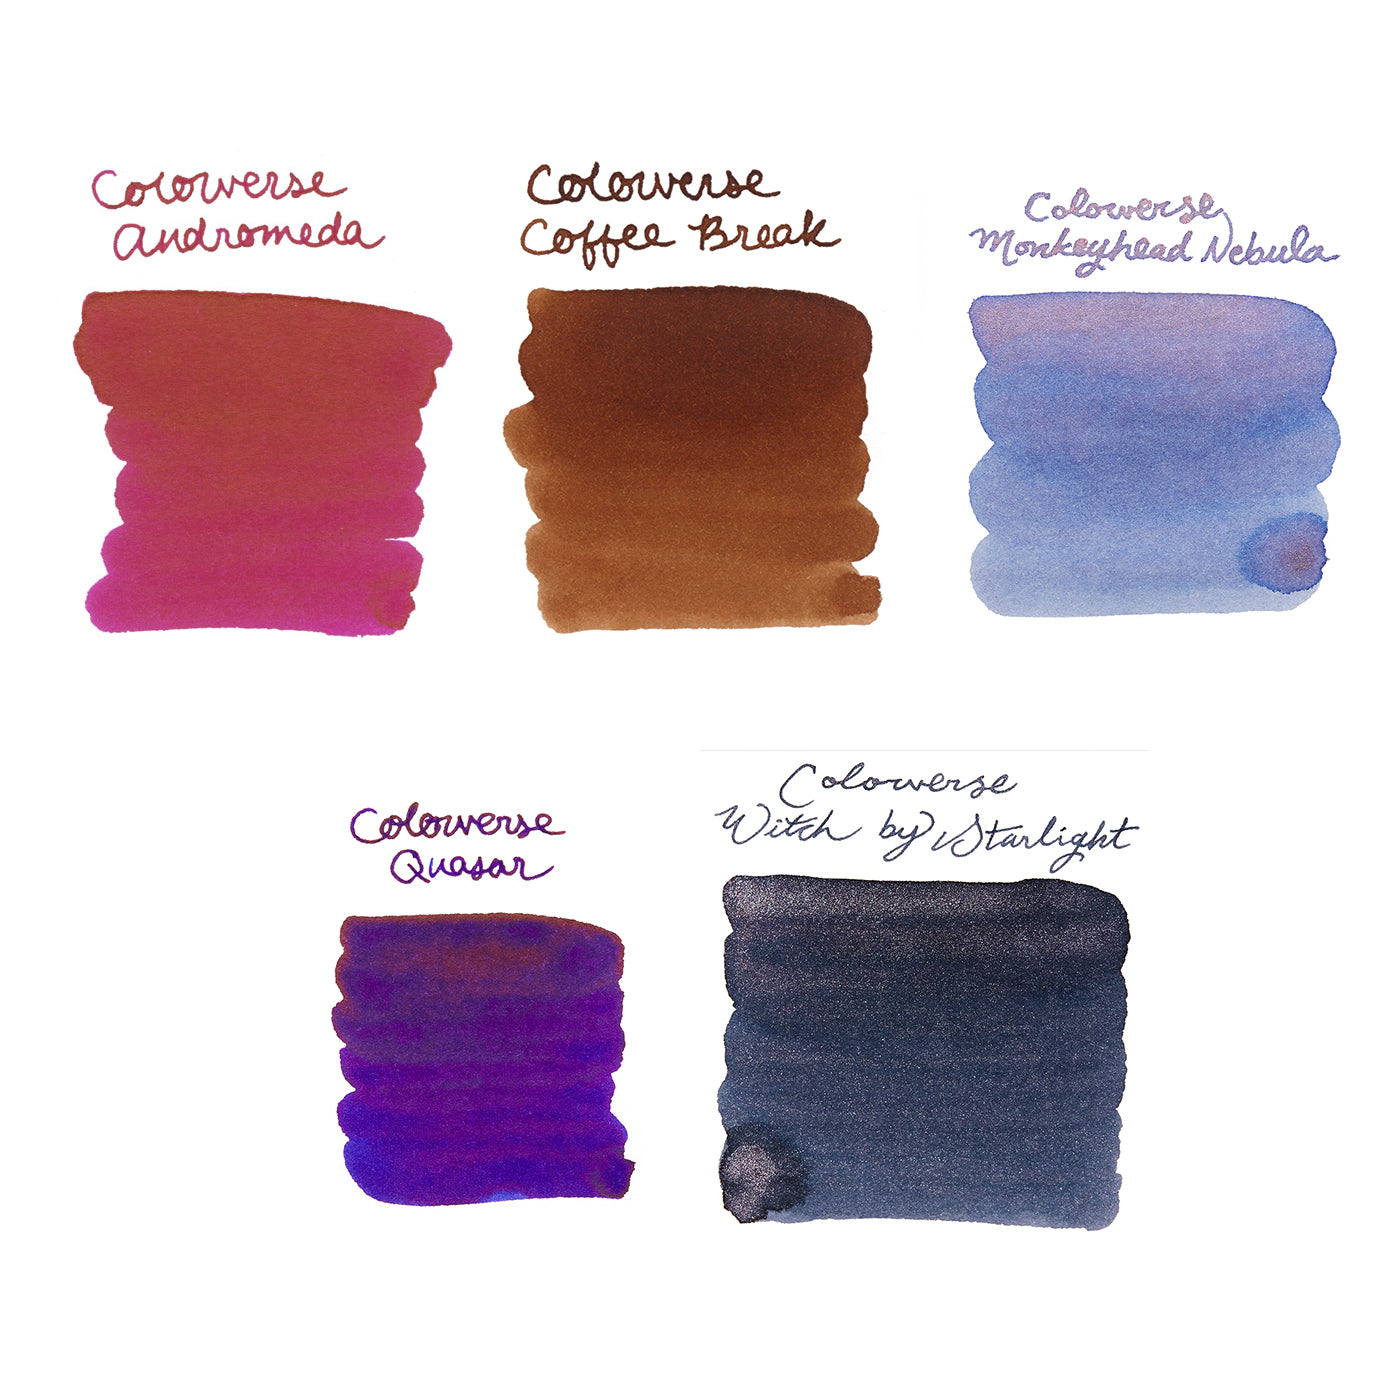 Colorverse
Andromeda
Colorverse
Coffee Break
Colorverse
Monkeyhead Nebula
Colorverse
Quasar
Colorverse
Witch by Starlight